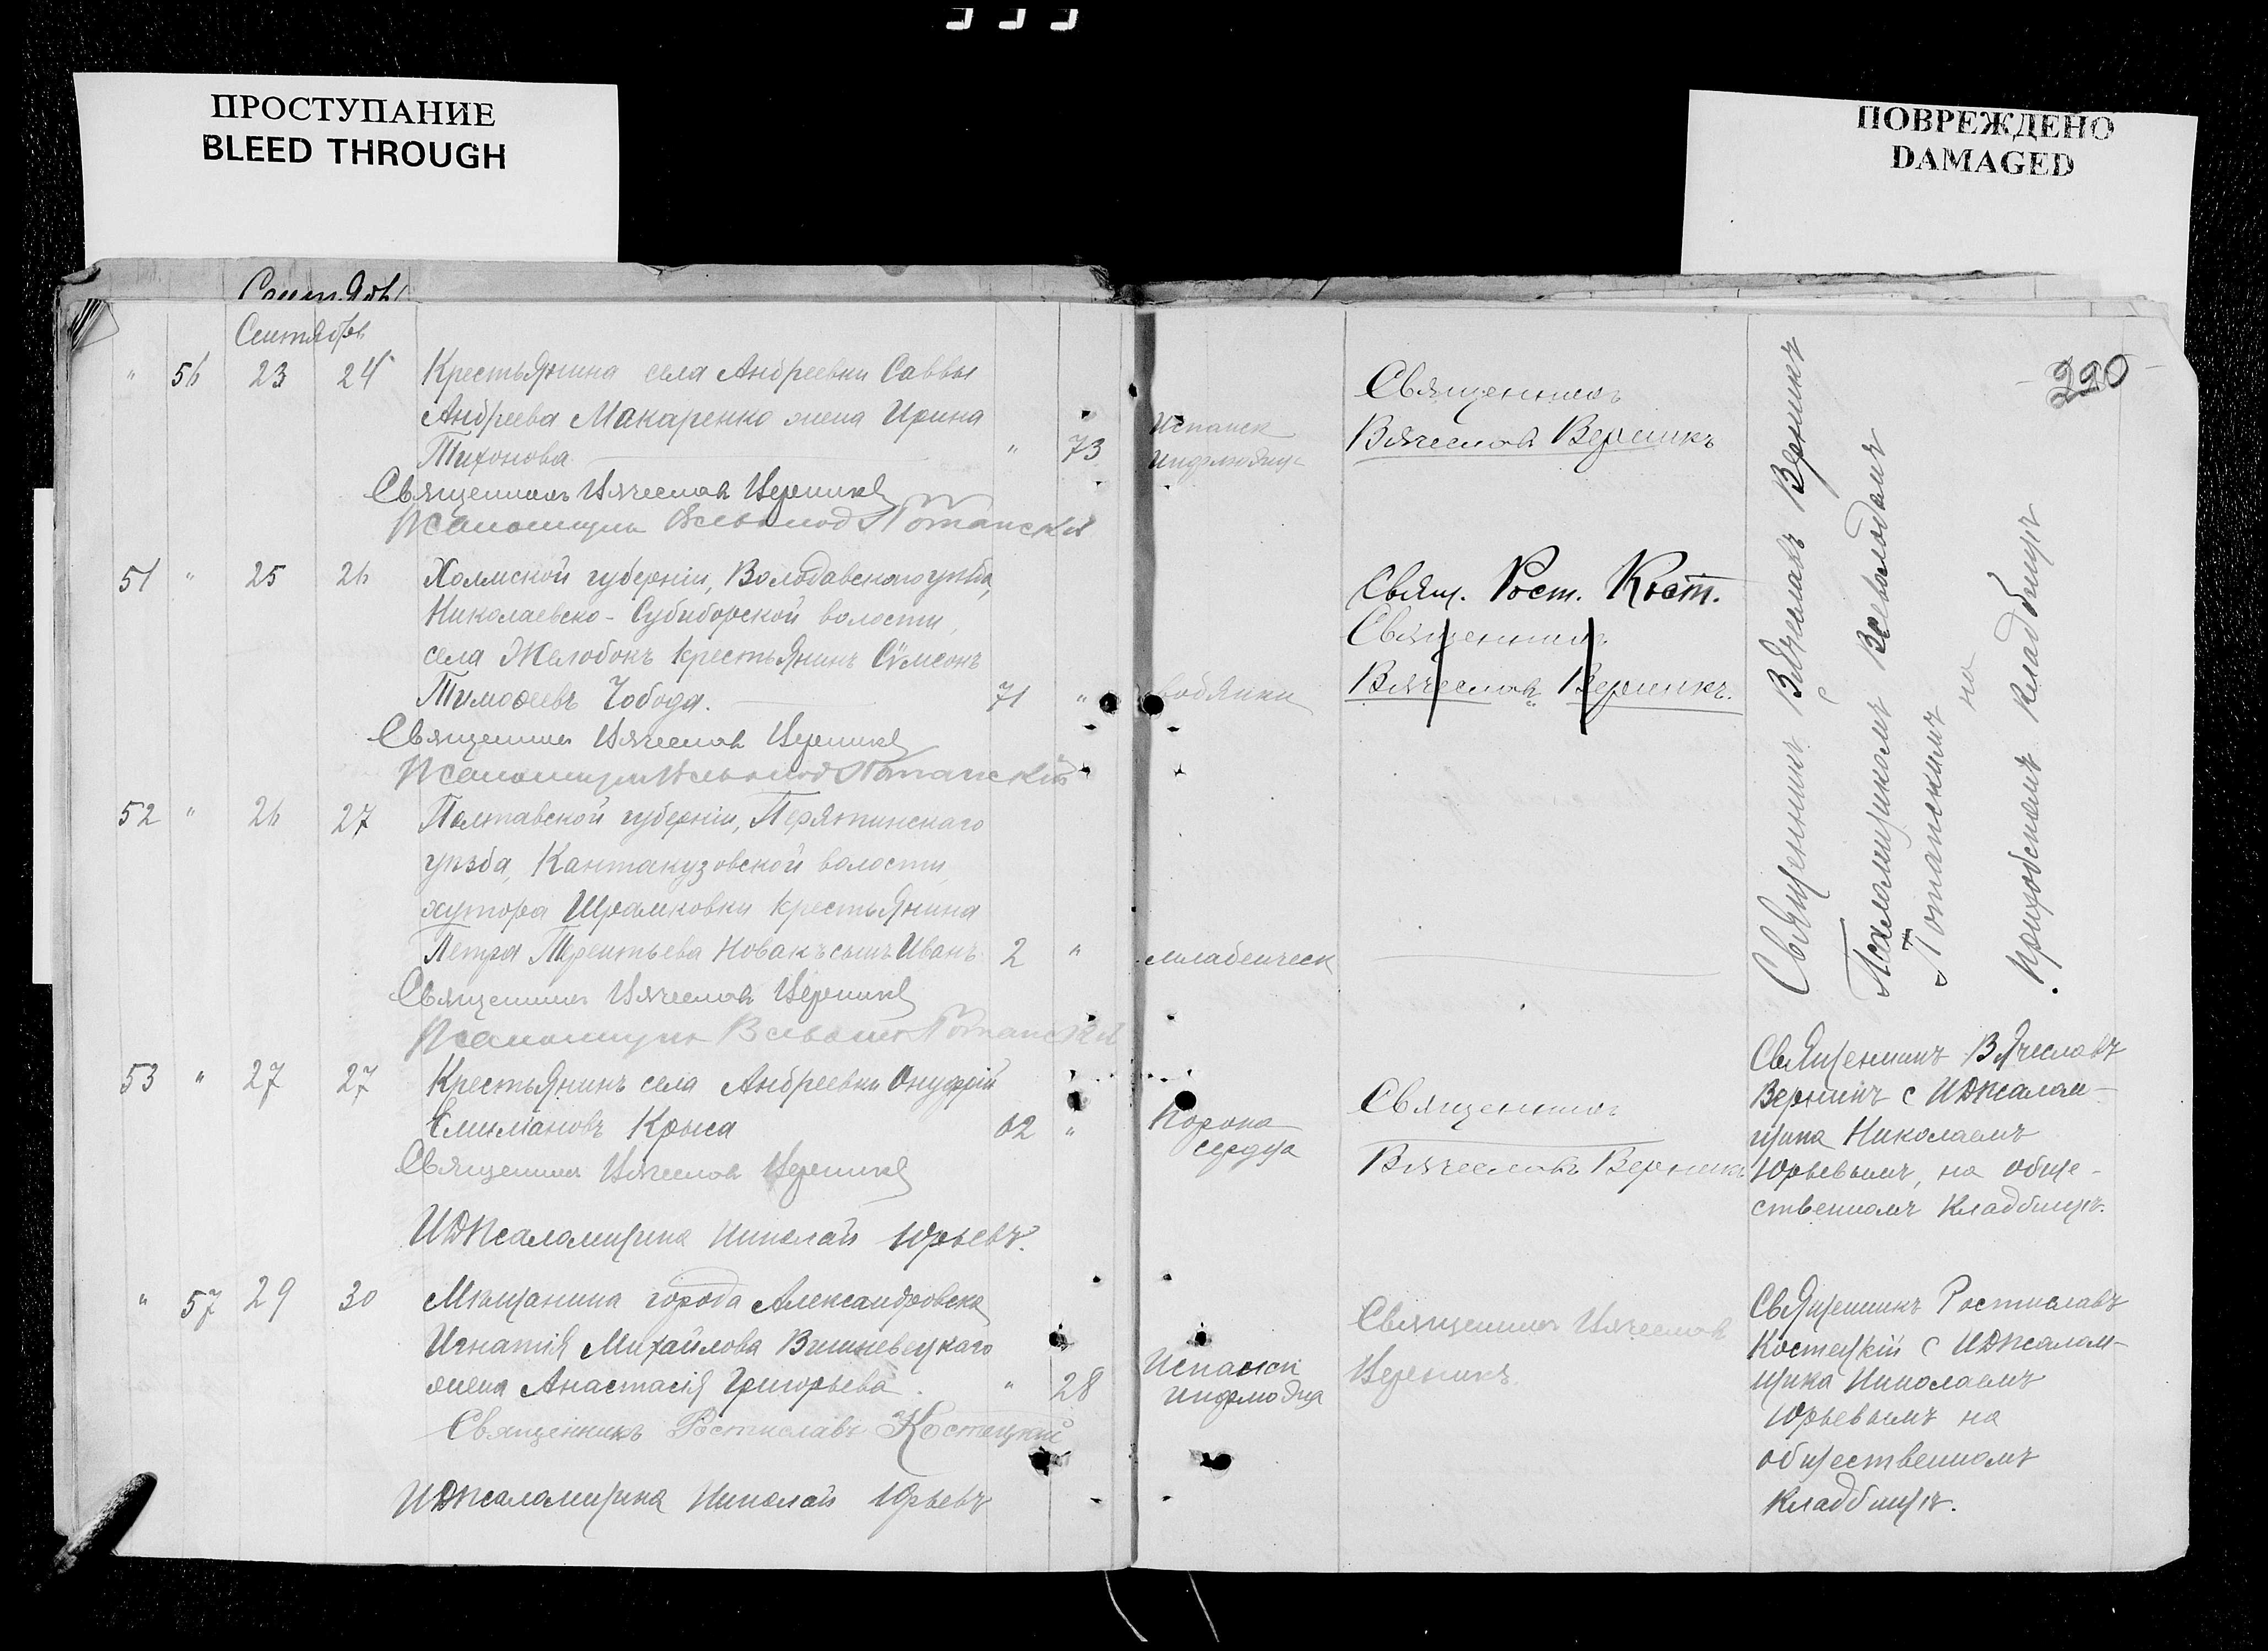 ПРОСТУПАНИЕ
BLEED THROUGH
ПОВРЕЖДЕНО
DAMAGED
Сентябрь
220
" 56 23 24 Крестьянина села Андреевки Саввы
Андреева Макаренко жена Ирина
Тихонова " 73
Испанск
Священник
Вячеслав Верникъ
Священник Вячеслав Верник
Псаломщик Всеволод Потапский
51 " 25 26 Холмской губерніи, Володавского уезда,
Николаевско-Субиборской волости,
села Желобокъ крестьянинъ Сумеонъ
Тимоѳеевъ Чобода. 71 "
водянки
Свящ. Рост. Кост.
Священник
Вячеслав Верникъ.
Священник Вячеслав Верник
Псаломщик Всеволод Потапскій
52 " 26 27 Полтавской губерніи, Пирятинскаго
уѣзда, Кантакузовской волости
хутора Шрамковки крестьянина
Петра Терентьева Новакъ сынъ Иванъ 2 "
младенческ
Священник Вячеслав Верник
Псаломщик Всеволод Потапский
Священникъ Вячеславъ Верникъ
с Псаломщикомъ Всеволодомъ
Потапскимъ на
приходскомъ кладбищѣ
53 " 27 27 Крестьянинъ села Андреевки Онуфрій
Емиліановъ Крыса 62 "
Порока
сердца
Священник
Вячеславъ Верникъ
Священник Вячеслав Верник
ИДПсаломщика Николай Юрьевъ.
Священникъ Вячеславъ
Верникъ с ИДПсалом-
щика Николаемъ
Юрьевымъ, на обще-
ственномъ кладбищѣ.
" 57 29 30 Мѣщанина города Александровска
Игнатія Михайлова Вишневецкаго
жена Анастасія Григорьева. " 28
Испанск
Священник Вячеслав
Верникъ.
Священникъ Ростиславъ Костецкій
ИДПсаломщика Николай Юрьевъ
Священникъ Ростиславъ
Костецкій с ИДПсалом-
щика Николаемъ
Юрьевымъ на
общественномъ
кладбищѣ.